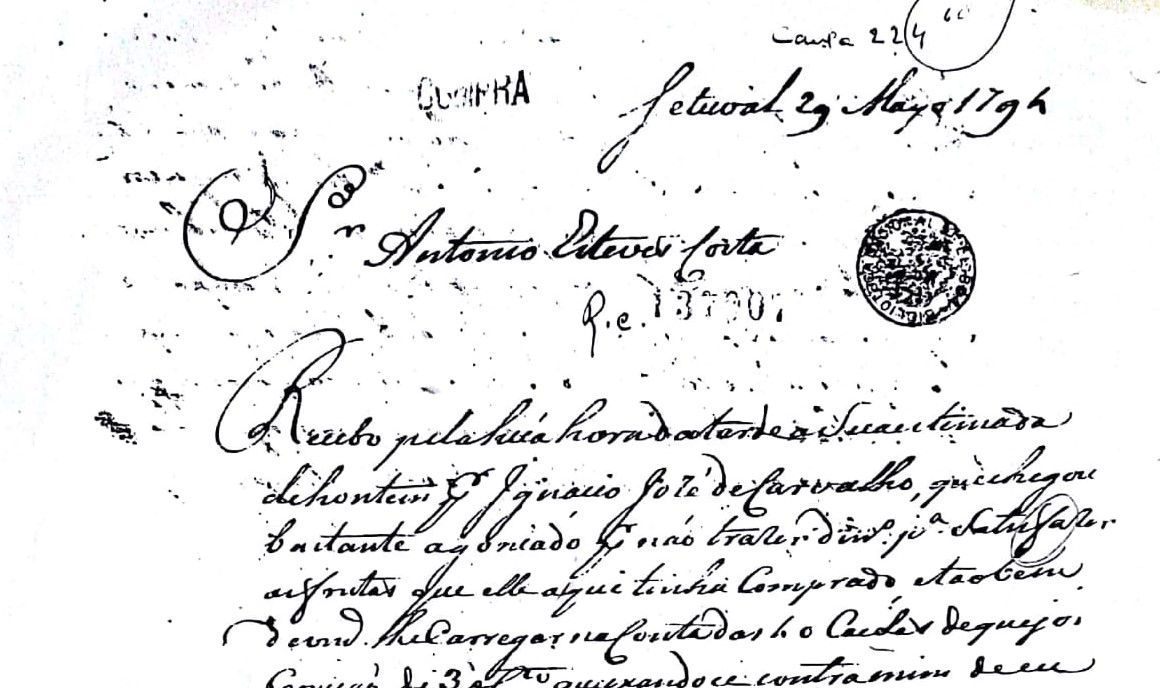 Caixa 224
60
COIMBRA
Setuval 29 Mayo 1794
Sr Antonio Esteves Costa
R.e. 137
Recebo pela húa hora da tarde a Sua estimada
de hontem Ignacio José de Carvalho, que chegou
bastante agoniado não trazer dinro. pa. Satisfazer
as frutas que elle aqui tinha Comprado e taobem
de eu lhe Carregar na Conta das de queijos
contra mim de eu